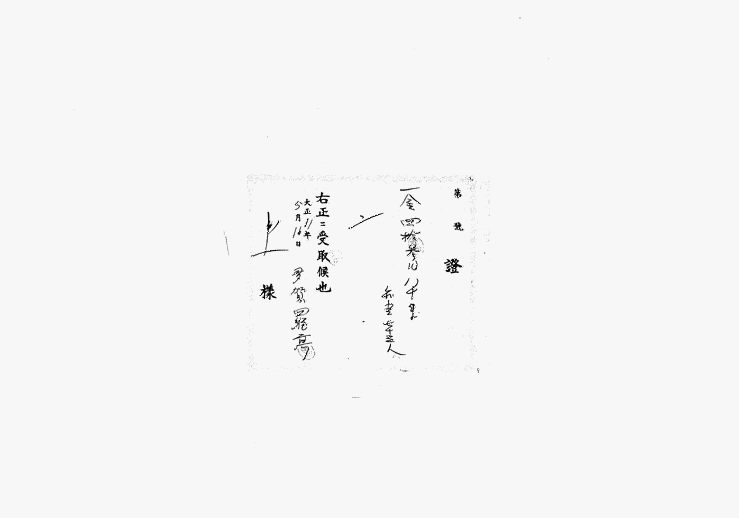 第 號
證
一金四拾参円八十銭
右正ニ受取候也
大正11年
5月16日
多賀羅亭
上 様